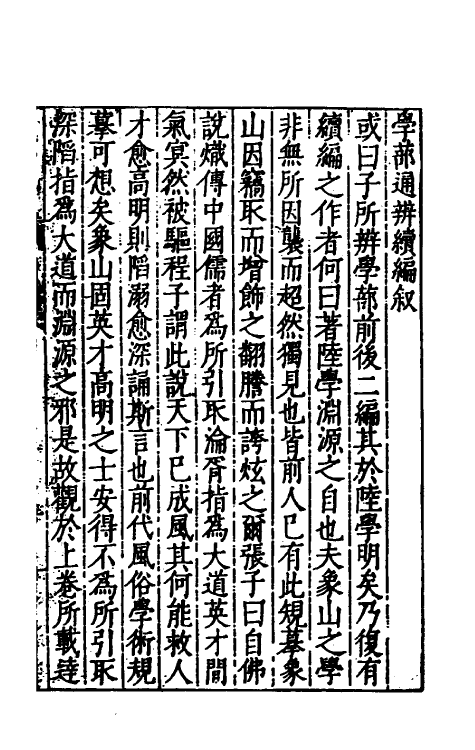 學蔀通辨續編叙
或曰子所辨學蔀前後二編其於陸學明矣乃復有
續編之作者何曰著陸學淵源之自也夫象山之學
非無所因襲而超然獨見也皆前人已有此規摹象
山因竊取而增飾之翻騰而誇炫之爾張子曰自佛
說熾傳中國儒者為所引取淪胥指為大道英才間
氣冥然被驅程子謂此說天下已成風其何能救人
才愈高明則陷溺愈深誦斯言也前代風俗學術規
摹可想矣象山固英才高明之士安得不為所引取
深陷指為大道而淵源之邪是故觀於上卷所載達